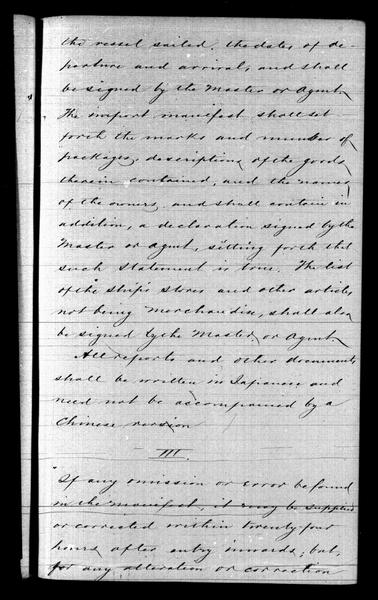 the vessel sailed, the dates of de-
parture and arrival, and shall
be signed by the Master or Agent.
The import manifest shall set
forth the marks and number of
packages, descriptions of the goods
therein contained, and the names
of the owners, and shall contain in
addition, a declaration signed by the
Master or agent, sitting forth that
such statement is true. The list
of the ship's stores and other articles
not being merchandise, shall also
be signed by the Master or Agent.
All reports and other documents
shall be written in Japanese and
need not be accompanied by a
Chinese version
III.
If any omission or error be found
in the manifest, it may be supplied
or corrected within twenty four
hours after entry inwards; but,
for any alteration or correction